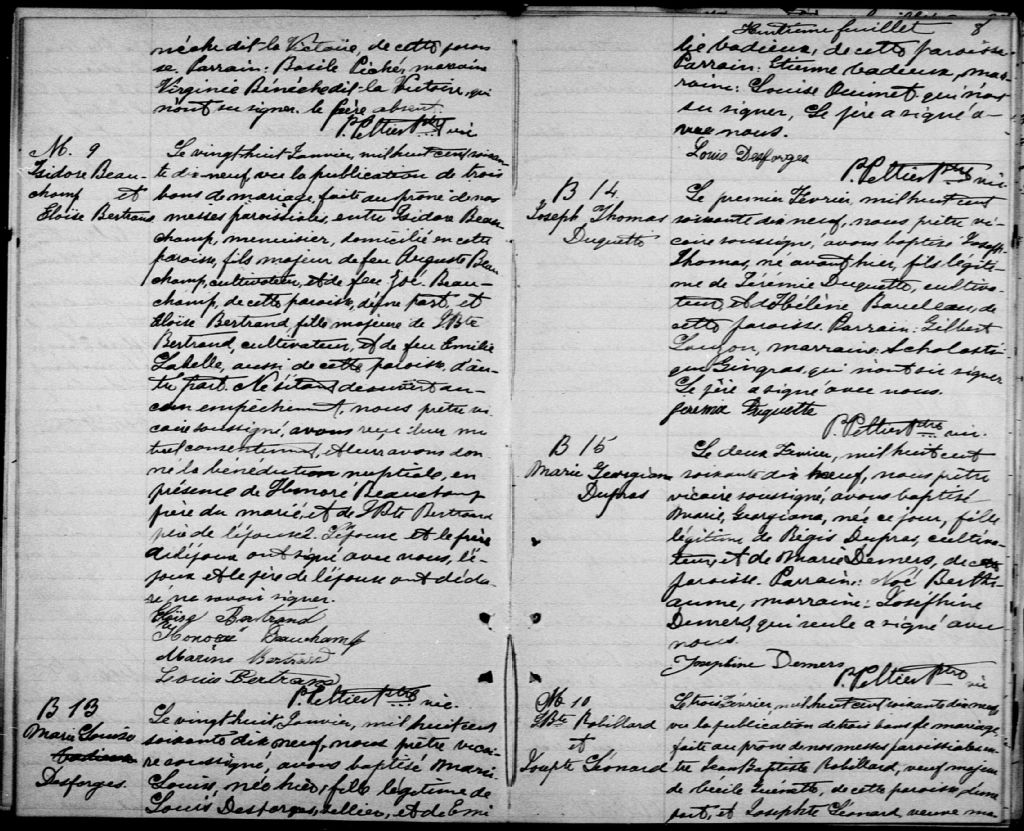 néche dit la Victoire, de cette parois
se. Parrain: Basile Piché, marraine
Virginie Bénèche dit la Victoire, qui
n'ont su signer. le père absent.
P. Peltier Ptre vic
M. 9
Isidore Beau-
champ et
Eloïse Bertrand
Le vingt huit Janvier, mil huit cent soixan
te dix neuf vu la publication de trois
bans de mariage, faite au prône de nos
messes paroissiales, entre Isidore Beau
champ, menuisier, domicilié en cette
paroisse, fils majeur de feu Auguste Beau
champ, cultivateur, et de feu Zoé Beau-
champ, de cette paroisse, d'une part, et
Eloïse Bertrand, fille majeure de JBte
Bertrand, cultivateur, et de feu Emilie
Labelle, aussi de cette paroisse, d'au-
tre part. Ne s'étant découvert au-
cun empêchement, nous prêtre vi
caire soussigné, avons reçu leur mu
tuel consentement, et leur avons don
né la bénédiction nuptiale, en
présence de Honoré Beauchamp
frère du marié, et de JBte Bertrand
père de l'épouse. L'épouse et le frère
de l'époux ont signé avec nous, l'é-
poux et le père de l'épouse ont décla
ré ne savoir signer.
Eloïse Bertrand
Honoré Beauchamp
Marine Bertrand
Louis Bertrand
P. Peltier Ptre vic.
B 13
Marie Louise
Desforges.
Le vingt huit Janvier, mil huit cent
soixante dix neuf, nous prêtre vicai
re soussigné, avons baptisé Marie
Louise, née hier, fille légitime de
Louis Desforges, sellier, et de Emi
Huitième feuillet 8
lie Cadieux, de cette paroisse.
Parrain: Etienne Cadieux, mar
raine: Louise Ouimet qui n'ont
su signer, Le père a signé a-
vec nous.
Louis Desforges
P. Peltier Ptre vic
B 14
Joseph Thomas
Duquette
Le premier Février, mil huit cent
soixante dix neuf, nous prêtre vi
caire soussigné, avons baptisé Joseph
Thomas, né avant hier, fils légiti-
me de Jérémie Duquette, cultiva-
teur, et d'Hélène Bauleau, de
cette paroisse. Parrain: Gilbert
marraine: Scholasti-
que Gingras, qui n'ont su signer
Le père a signé avec nous.
Duquette
P. Peltier Ptre vic.
B 15
Marie Georgiana
Dupras
Le deux Février, mil huit cent
soixante dix neuf, nous prêtre
vicaire soussigné, avons baptisé
Marie, Georgiana, née ce jour, fille
légitime de Régis Dupras, cultiva-
teur, et de Marie Demers, de cette
paroisse. Parrain: Noé Berthi-
aume, marraine: Joséphine
Demers, qui seule a signé avec
nous.
Josephine Demers
P. Peltier Ptre vic
M. 10
JBte Robillard
et
Josepte Léonard
Le trois Février, mil huit cent soixante dix neuf,
vu la publication de trois bans de mariage,
faite au prône de nos messes paroissiales en-
tre Jean Baptiste Robillard, veuf majeur
de Cécile de cette paroisse, d'une
part, et Josephte Léonard, veuve ma